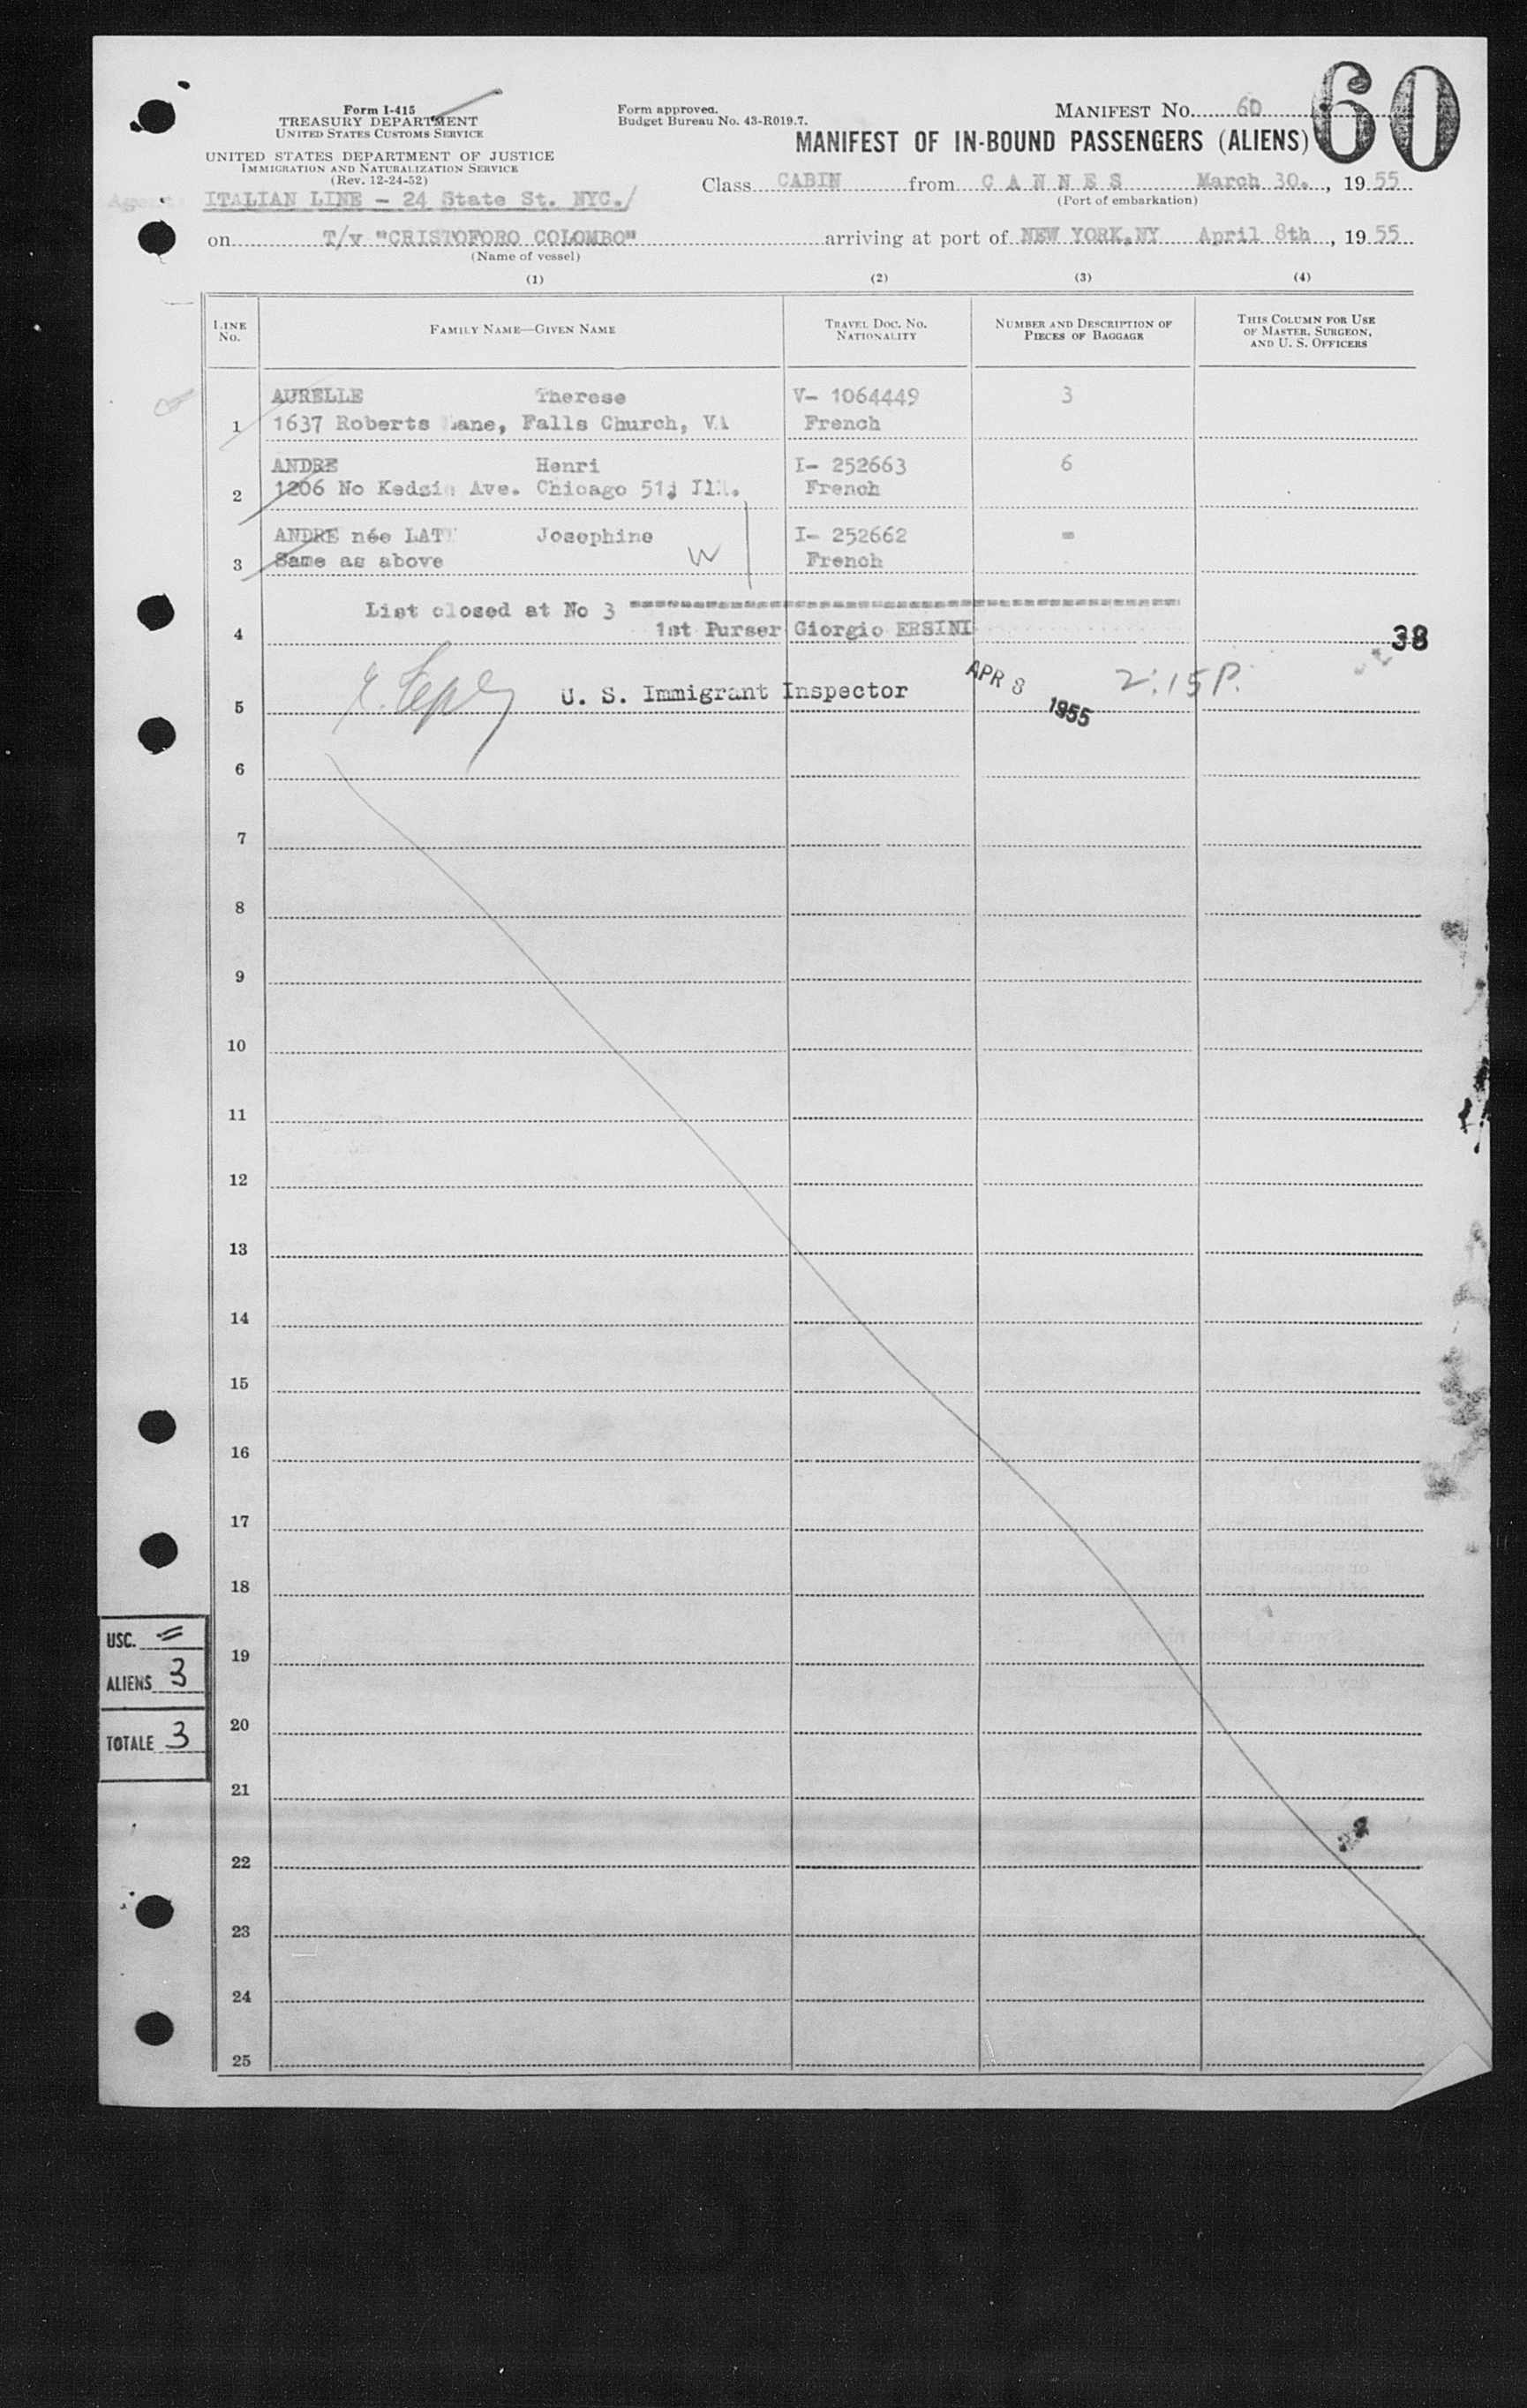 Form I-415
TREASURY DEPARTMENT
UNITED STATES CUSTOMS SERVICE
UNITED STATES DEPARTMENT OF JUSTICE
IMMIGRATION AND NATURALIZATION SERVICE
(Rev. 12-24-52)
Form approved.
Budget Bureau No. 43-R019.7.
MANIFEST NO. 60
60
MANIFEST OF IN-BOUND PASSENGERS (ALIENS)
Class CABIN from C A N N E S March 30., 1955
(Port of embarkation)
ITALIAN LINE - 24 State St. NYC./
on T/v "CRISTOFORO COLOMBO" arriving at port of NEW YORK,NY April 8th, 1955
(Name of vessel)
(1) (2) (3) (4)
LINE NO. FAMILY NAME—GIVEN NAME TRAVEL DOC. NO. NATIONALITY NUMBER AND DESCRIPTION OF PIECES OF BAGGAGE THIS COLUMN FOR USE OF MASTER, SURGEON, AND U. S. OFFICERS
AURELLE Therese V- 1064449 3
1 1637 Roberts Lane, Falls Church, VA French
ANDRE Henri I- 252663 6
2 1206 No Kedzie Ave. Chicago 51, Ill. French
ANDRE née LATT Josephine I- 252662 -
3 Same as above W French
List closed at No 3
4 1st Purser Giorgio ERSINI
38
5 U. S. Immigrant Inspector APR 8 1955 2:15 P.
6
7
8
9
10
11
12
13
14
15
16
17
18
19
20
21
22
23
24
25
USC. =
ALIENS 3
TOTALE 3